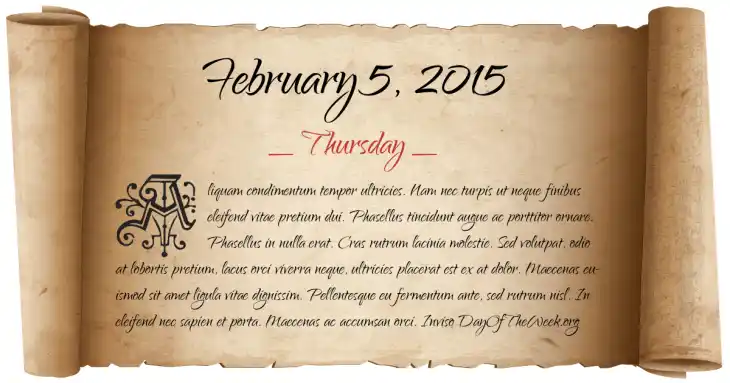 February 5, 2015
Thursday
Aliquam condimentum tempor ultricies. Nam nec turpis ut neque finibus
eleifend vitae pretium dui. Phasellus tincidunt augue ac porttitor ornare.
Phasellus in nulla erat. Cras rutrum lacinia molestie. Sed volutpat, odio
at lobortis pretium, lacus orci viverra neque, ultricies placerat est ex at dolor. Maecenas eu-
ismod sit amet ligula vitae dignissim. Pellentesque eu fermentum ante, sed rutrum nisl. In
eleifend nec sapien et porta. Maecenas ac accumsan orci. Inviso DayOfTheWeek.org